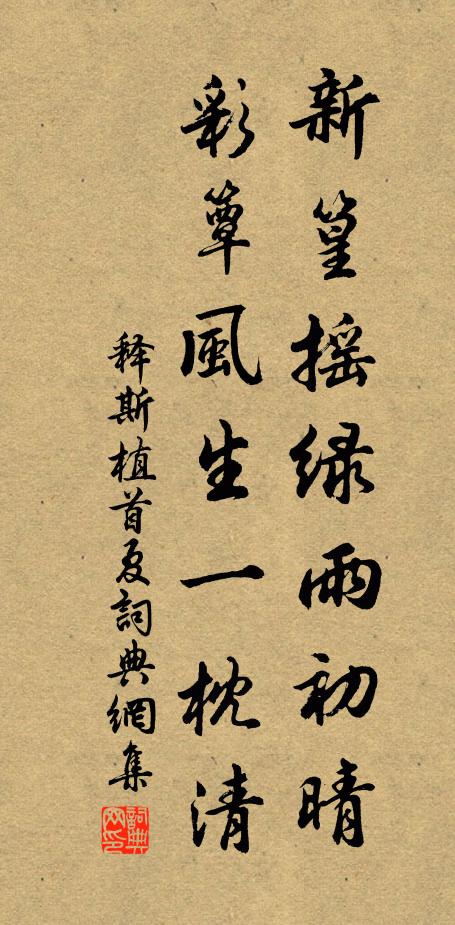 新篁摇绿雨初晴
彩簟風生一枕清
释斯植首夏詞典網集
詞典网印